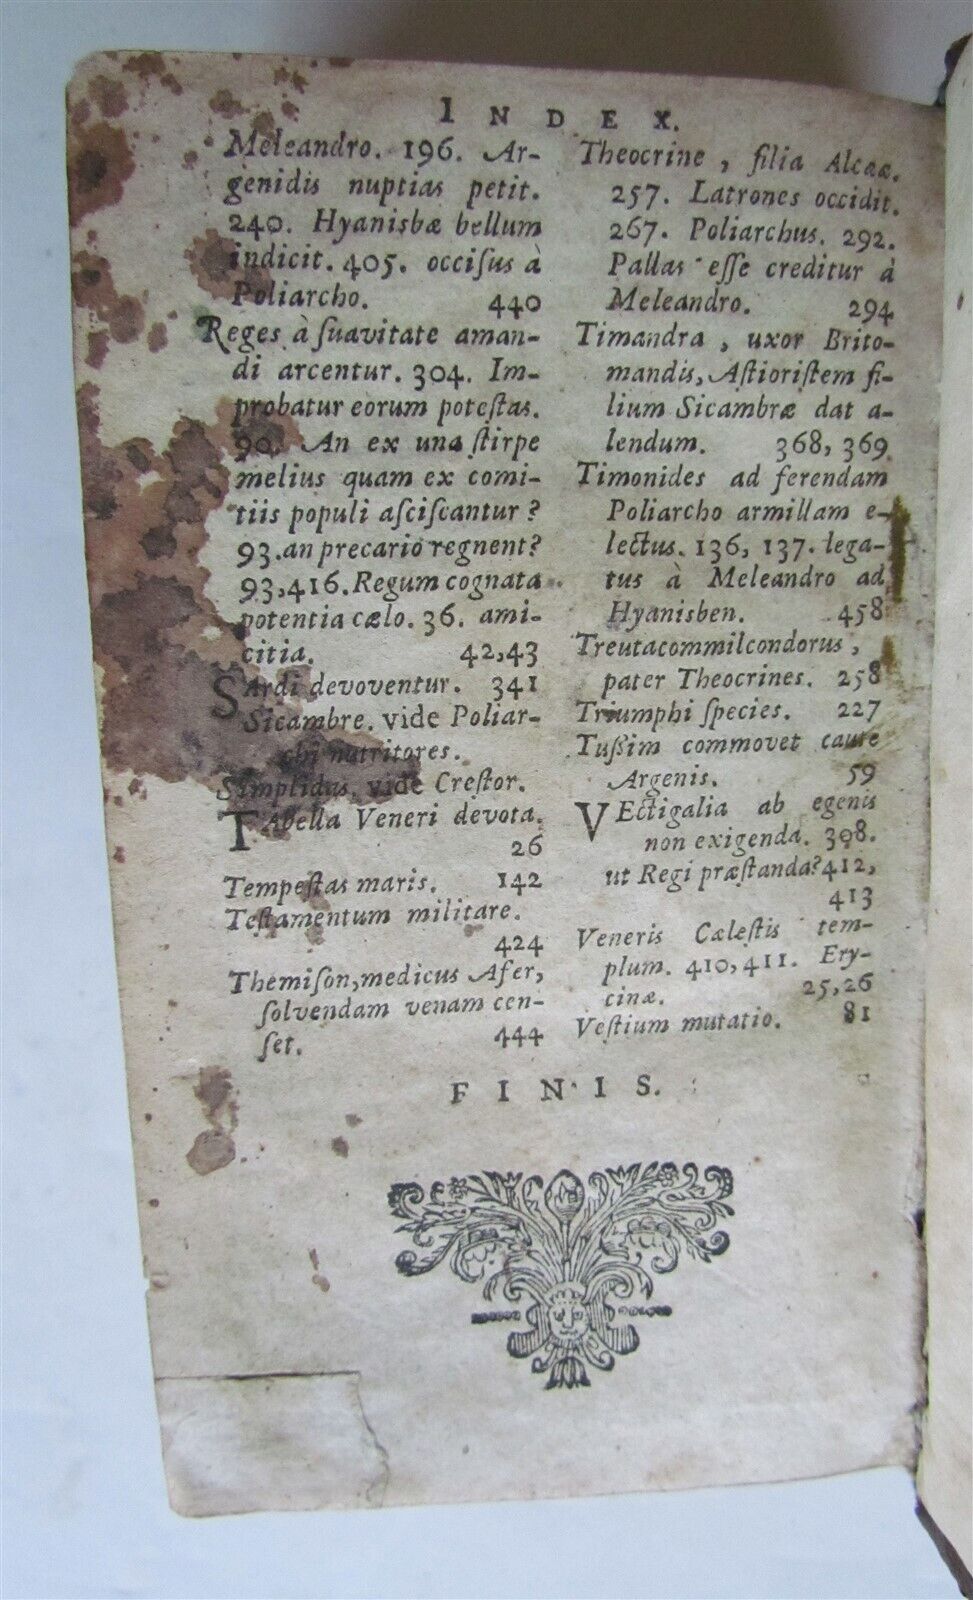 INDEX.
Meleandro. 196. Ar-
genidis nuptias petit.
240. Hyanisbæ bellum
indicit. 405. occiſus à
Poliarcho. 440
Reges à ſuavitate aman-
di arcentur. 304. Im-
probatur eorum poteſtas.
90. An ex una ſtirpe
melius quam ex comi-
tiis populi aſciſcantur?
93. an precario regnent?
93, 416. Regum cognata
potentia cælo. 36. ami-
citia. 42, 43
SArdi devoventur. 341
Sicambre. vide Poliar-
chi nutritores.
Simplidus, vide Creſtor.
TAbella Veneri devota.
26
Tempeſtas maris. 142
Teſtamentum militare.
424
Themiſon, medicus Afer,
ſolvendam venam cen-
ſet. 444
Theocrine, filia Alcææ.
257. Latrones occidit.
267. Poliarchus. 292.
Pallas eſſe creditur à
Meleandro. 294
Timandra, uxor Brito-
mandis, Aſtioriſtem fi-
lium Sicambræ dat a-
lendum. 368, 369
Timonides ad ferendam
Poliarcho armillam e-
lectus. 136, 137. lega-
tus à Meleandro ad
Hyanisben. 458
Treutacommilcondorus,
pater Theocrines. 258
Triumphi ſpecies. 227
Tuſſim commovet caute
Argenis. 59
VEctigalia ab egenis
non exigenda. 398.
ut Regi præſtanda? 412,
413
Veneris Cæleſtis tem-
plum. 410, 411. Ery-
cinæ. 25, 26
Veſtium mutatio. 81
FINIS.